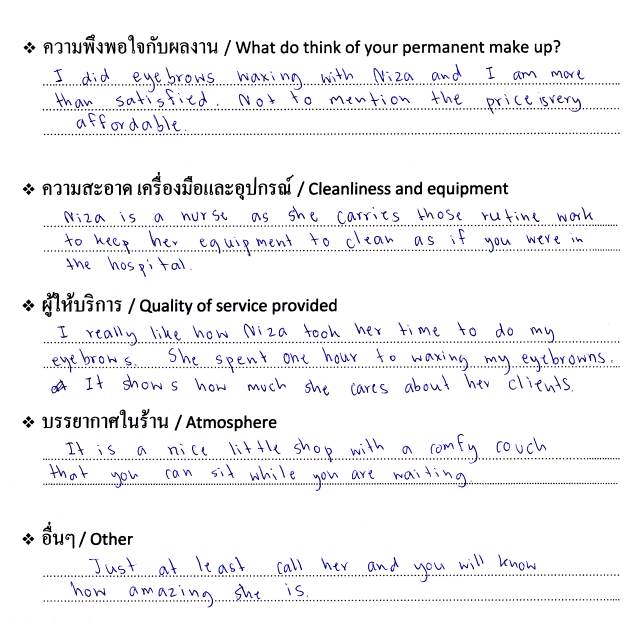 ❖ ความพึงพอใจกับผลงาน / What do think of your permanent make up?
I did eyebrows waxing with Niza and I am more
than satisfied. Not to mention the price is very
affordable.
❖ ความสะอาด เครื่องมือและอุปกรณ์ / Cleanliness and equipment
Niza is a nurse as she carries those rutine work
to keep her equipment to clean as if you were in
the hospital.
❖ ผู้ให้บริการ / Quality of service provided
I really like how Niza took her time to do my
eyebrows. She spent one hour to waxing my eyebrowns.
It shows how much she cares about her clients.
❖ บรรยากาศในร้าน / Atmosphere
It is a nice little shop with a comfy couch
that you can sit while you are waiting
❖ อื่นๆ / Other
Just at least call her and you will know
how amazing she is.